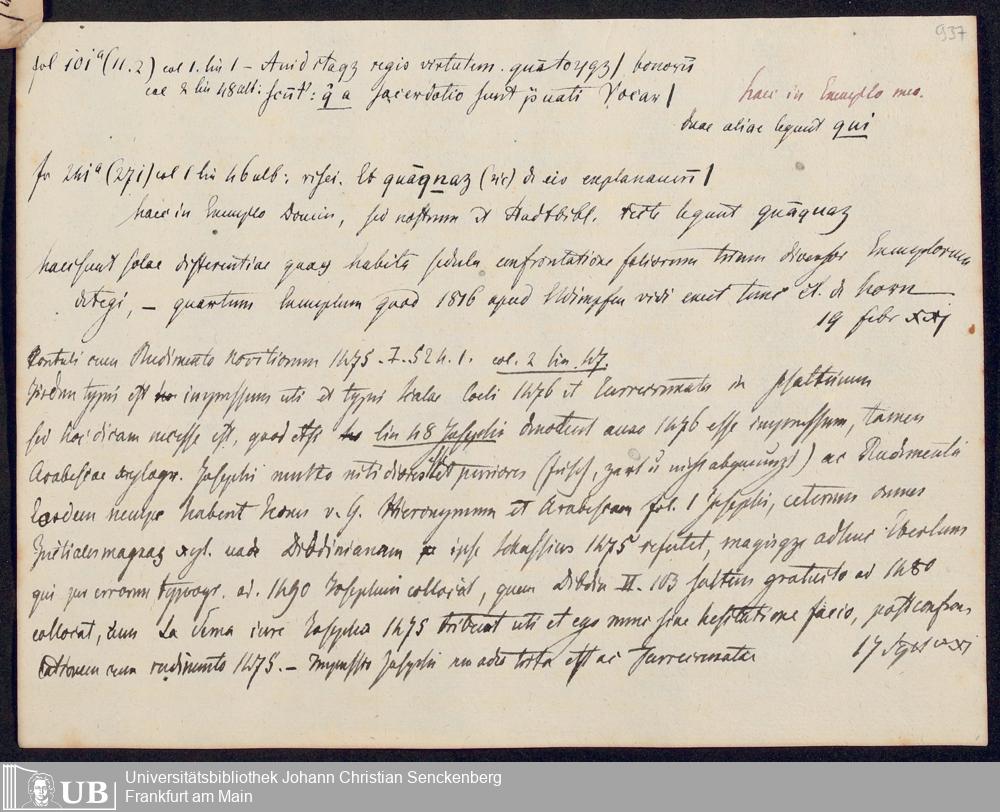 937
fol 101ª (11.2) col 1. lin 1 – regis virtutem. honorū
col 2 lin 48 ult: scūt: q̄ a sacerdotio sunt p̄uati Vocar
haec in Exemplo meo.
duae aliae legunt qui
fo 241ª (271) col 1 lin 46 alb: Et quāqnaz (sic) di eis explanauerū
haec in Exemplo Domin, sed nostrum et Stadtbibl. recte legunt quāquaz
haec sunt solae differentiae quas habita sedula confrontatione foliorum trium diversor Exemplorum
detegi, – quartum Exemplum quod 1816 apud Wimpfen vidi emit tunc de Horn
19 febr xxj
Contuli cum Rudimento Novitiorum 1475. I. 524. 1. col. 2 lin. 47.
Eisdem typis est impressum uti et typi Scalae Coeli 1476 et Turrecremata in psalterium
sed hoc dicam necesse est, quod etsi lin 48 Josephi denotent anno 1476 esse impressum, tamen
Arabescae xylogr. Josephi multo nitidiores et puriores (frisch, zart u nicht abgenutzt) ac Rudimenti
Easdem nempe habent Horus v. G. Hieronymum et Arabescam fol. 1 Josephi, ceterum omnes
Initiales magnas xyl. unde Dibdinianam ipse Schussius 1475 refutet, magisqze adhuc Eberlum
qui per errorem typogr. ad. 1490 Josephum collocat, quem Dibdin II. 103 saltem gratuito ad 1480
collocat, dum La Serna iure Josepho 1475 tribuat uti et ego nunc sine hesitatione facio, post confron
tationem cum rudimento 1475. – Impressio Josephi est ac Turrecremata
17 Sept xxj
UB
Universitätsbibliothek Johann Christian Senckenberg
Frankfurt am Main